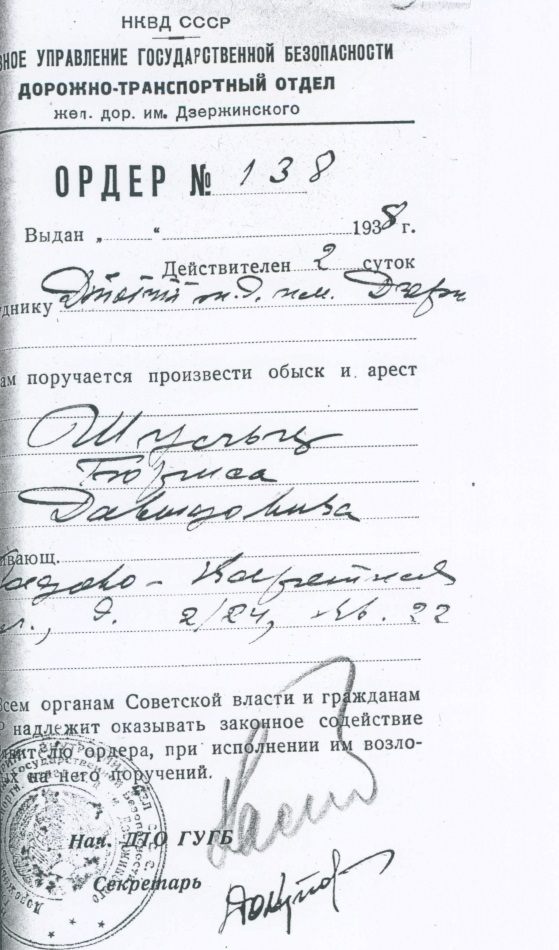 НКВД СССР
ВНОЕ УПРАВЛЕНИЕ ГОСУДАРСТВЕННОЙ БЕЗОПАСНОСТИ
ДОРОЖНО-ТРАНСПОРТНЫЙ ОТДЕЛ
жел. дор. им. Дзержинского
ОРДЕР № 138
Выдан „ “ 1938 г.
Действителен 2 суток
уднику ж.д. им. Дзерж
ам поручается произвести обыск и арест
Бориса
Давидовича
ивающ.
Садово-Каретная
л., д. 2/24, кв. 22
Всем органам Советской власти и гражданам
Р надлежит оказывать законное содействие
нителю ордера, при исполнении им возло-
ых на него поручений.
Нач. ДТО ГУГБ
Секретарь